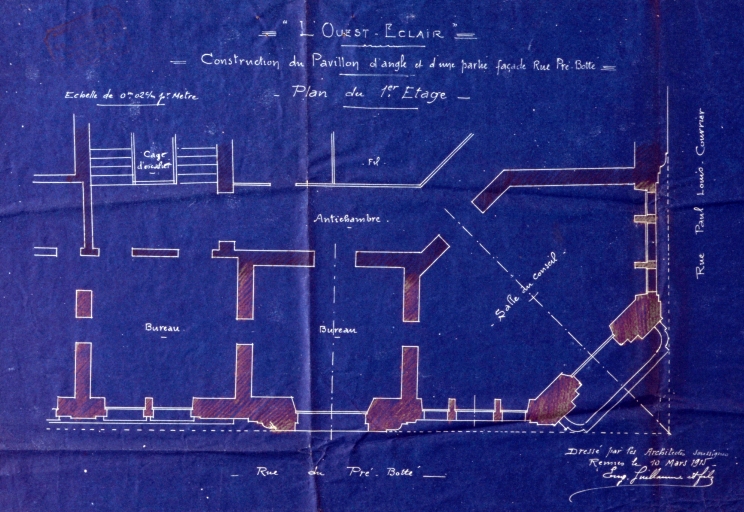 "L'OUEST-ECLAIR"
Construction du Pavillon d'angle et d'une partie façade Rue Pré-Botté
Echelle de 0m02c/m pr Metre
- Plan du 1er Etage -
Cage
d'escalier
Antichambre
Rue Paul Louis-Courrier
Salle du conseil
Bureau
Bureau
Dressé par les Architectes soussignés
Rennes le 10 Mars 1915
Eug. Guillaume et fils
- Rue du Pré-Botté -